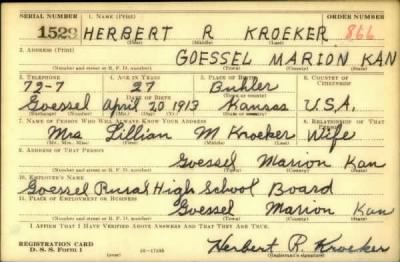 SERIAL NUMBER 1. NAME (Print) ORDER NUMBER
1529 HERBERT R KROEKER 866
(First) (Middle) (Last)
2. ADDRESS (Print)
GOESSEL MARION KAN
(Number and street or R. F. D. number) (Town) (County) (State)
3. TELEPHONE 4. AGE IN YEARS 5. PLACE OF BIRTH 6. COUNTRY OF CITIZENSHIP
72-7 27 Buhler
DATE OF BIRTH (Town or county)
Goessel April 20 1913 Kansas U.S.A.
(Exchange) (Number) (Mo.) (Day) (Yr.) (State or country)
7. NAME OF PERSON WHO WILL ALWAYS KNOW YOUR ADDRESS 8. RELATIONSHIP OF THAT PERSON
Mrs Lillian M Kroeker Wife
(Mr., Mrs., Miss) (First) (Middle) (Last)
9. ADDRESS OF THAT PERSON
Goessel Marion Kan
(Number and street or R. F. D. number) (Town) (County) (State)
10. EMPLOYER'S NAME
Goessel Rural High School Board
11. PLACE OF EMPLOYMENT OR BUSINESS
Goessel Marion Kan
(Number and street or R. F. D. number) (Town) (County) (State)
I AFFIRM THAT I HAVE VERIFIED ABOVE ANSWERS AND THAT THEY ARE TRUE.
REGISTRATION CARD
D. S. S. Form 1 Herbert R. Kroeker
(Registrant's signature)